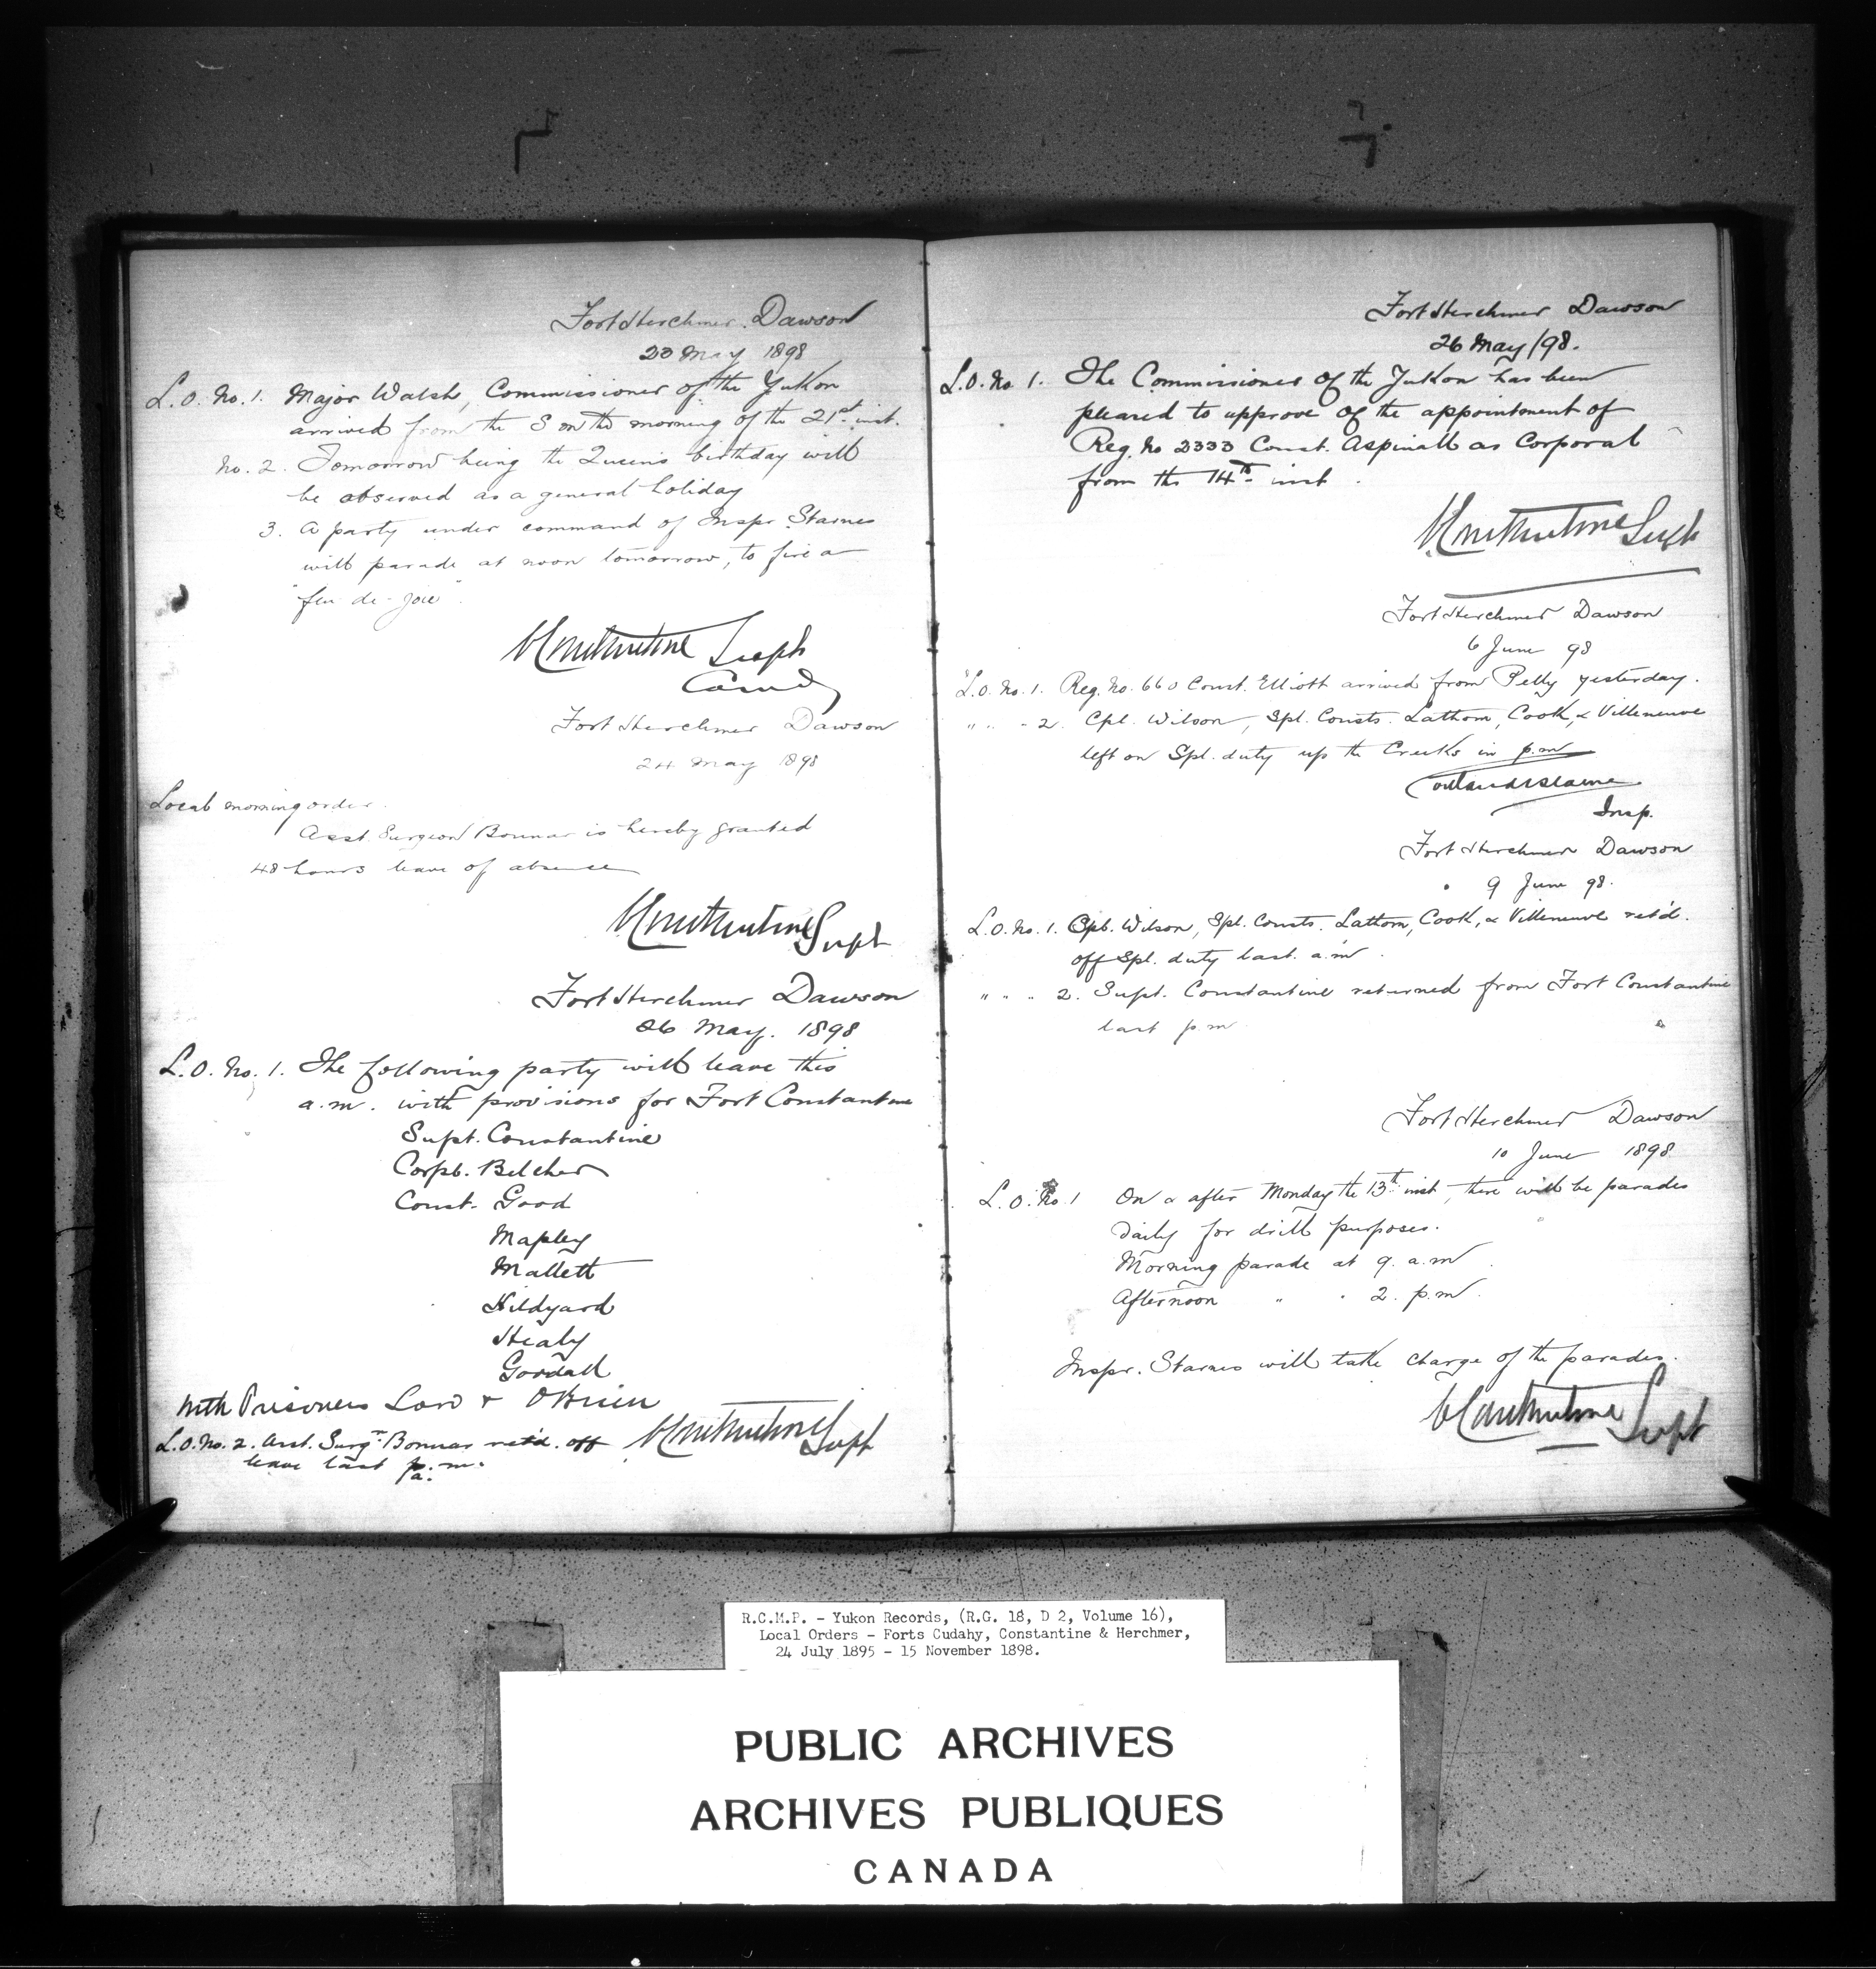 Fort Herchmer. Dawson
23 May 1898
L. O. No. 1. Major Walsh, Commissioner of the Yukon
arrived from the S on the morning of the 21st inst.
No. 2. Tomorrow being the Queen's birthday will
be observed as a general holiday
3. A party under command of Inspr. Starnes
will parade at noon tomorrow, to fire a
"feu-de-joie".
C Constantine Supt
Comdg
Fort Herchmer Dawson
24 May 1898
Local morning order.
Asst. Surgeon Bonnar is hereby granted
48 hours leave of absence
C Constantine Supt
Fort Herchmer Dawson
26 May. 1898
L. O. No. 1. The following party will leave this
a.m. with provisions for Fort Constantine
Supt. Constantine
Corpl. Belcher
Const. Good
Mapley
Mallett
Hildyard
Healy
Goodall
with Prisoners Law & O'Brien
L.O. No. 2. Asst. Surgn. Bonnar ret'd. off
leave last a. m.
C Constantine Supt
Fort Herchmer Dawson
26 May/98.
L.O. No 1. The Commissioner of the Yukon has been
pleased to approve of the appointment of
Reg. No 2333 Const. Aspinall as Corporal
from the 14th inst.
C Constantine Supt
Fort Herchmer Dawson
6 June 98
L.O. No. 1. Reg. No. 660 Const. Elliott arrived from Pelly yesterday.
" " " 2. Cpl. Wilson, Spl. Consts. Lathom, Cook, & Villeneuve
left on Spl. duty up the Creeks in p.m
Insp.
Fort Herchmer Dawson
9 June 98.
L.O. No. 1. Cpl. Wilson, Spl. Consts. Lathom, Cook, & Villeneuve ret'd.
off Spl. duty last a.m.
" " " 2. Supt. Constantine returned from Fort Constantine
last p.m
Fort Herchmer Dawson
10 June 1898
L. O. No. 1 On & after Monday the 13th inst, there will be parades
daily for drill purposes.
Morning parade at 9. a.m.
Afternoon " " 2. p.m.
Inspr. Starnes will take charge of the parades.
C Constantine Supt
R.C.M.P. - Yukon Records, (R.G. 18, D 2, Volume 16),
Local Orders - Forts Cudahy, Constantine & Herchmer,
24 July 1895 - 15 November 1898.
PUBLIC ARCHIVES
ARCHIVES PUBLIQUES
CANADA